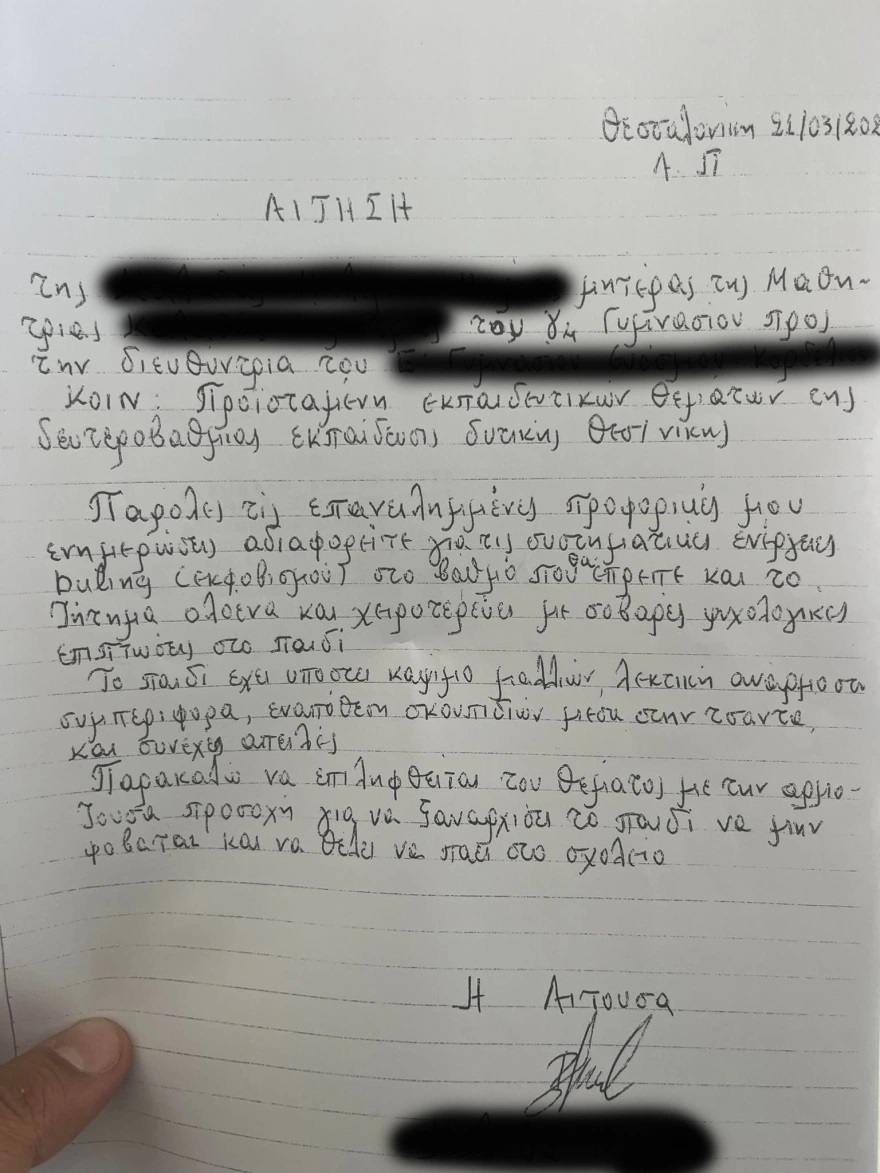 Θεσσαλονίκη 21/03/202
Α. Π
ΑΙΤΗΣΗ
της μητέρας της Μαθη-
τριας του γ4 Γυμνασιου προς
την διευθύντρια του
ΚΟΙΝ: Προϊσταμένη εκπαιδευτικών θεμάτων της
δευτεροβαθμιας εκπαίδευσις δυτικής Θεσ/νίκης
Παρόλες τις επανειλημμένες προφορικές μου
ενημερώσεις αδιαφορείτε για τις συστηματικές ενέργειες
buling (εκφοβισμού) στο βαθμό που θα έπρεπε και το
Ζήτημα ολοένα και χειροτερεύει με σοβαρές ψυχολογικες
επιπτωσεις στο παιδί
Το παιδί έχει υποστει κάψιμο μαλλιών, λεκτική ανάρμοστη
συμπεριφορα, εναπόθεση σκουπιδιών μεσα στην τσαντα,
και συνεχεις απειλές
Παρακαλώ να επιληφθείται του θέματος με την αρμο-
Ζουσα προσοχή για να ξαναρχισει το παιδί να μην
φοβαται και να θέλει να παει στο σχολειο
Η Αιτουσα